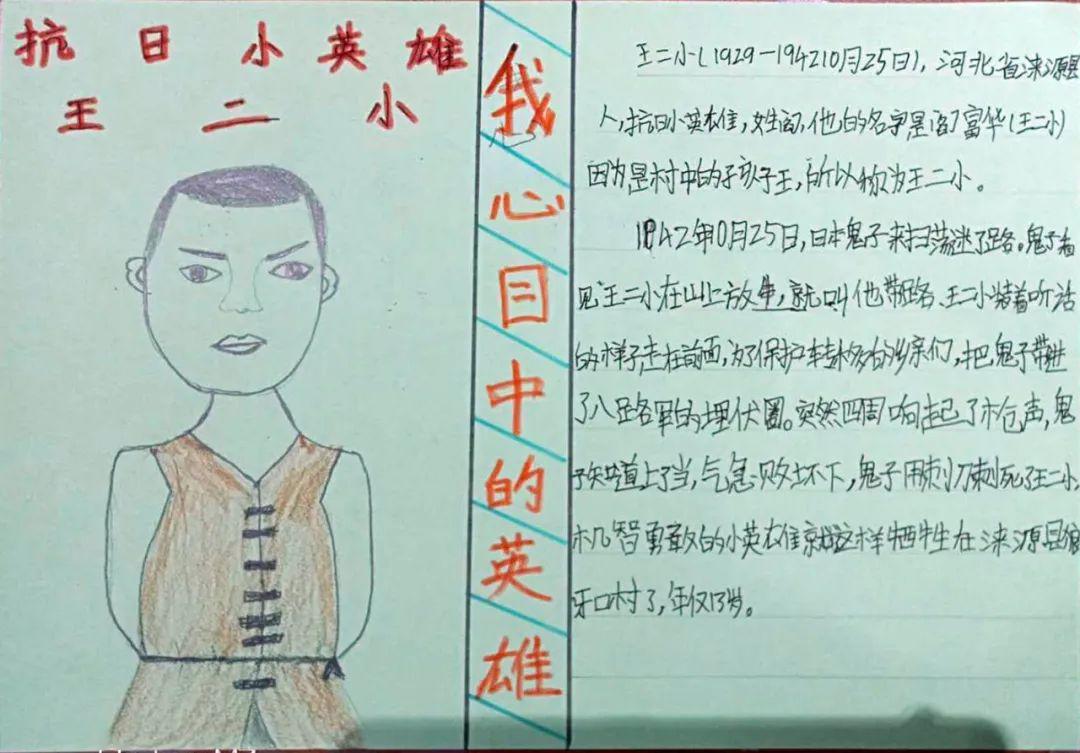 抗日小英雄
王二小
我心目中的英雄
王二小(1929-194210月25日),河北省涞源县
人,抗日小英雄,姓阎,他的名字是阎富华(王二小)
因为是村中的孩子王,所以称为王二小。
1942年0月25日,日本鬼子来扫荡迷了路。鬼子看
见王二小在山上放牛,就叫他带路、王二小装着听话
的样子走在前面,为了保护转移的乡亲们,把鬼子带进
了八路军的埋伏圈。突然四周响起了枪声,鬼
子知道上了当,气急败坏下,鬼子用刺刀刺死了王二小,
机智勇敢的小英雄就这样牺牲在涞源县狼
牙口村了,年仅13岁。